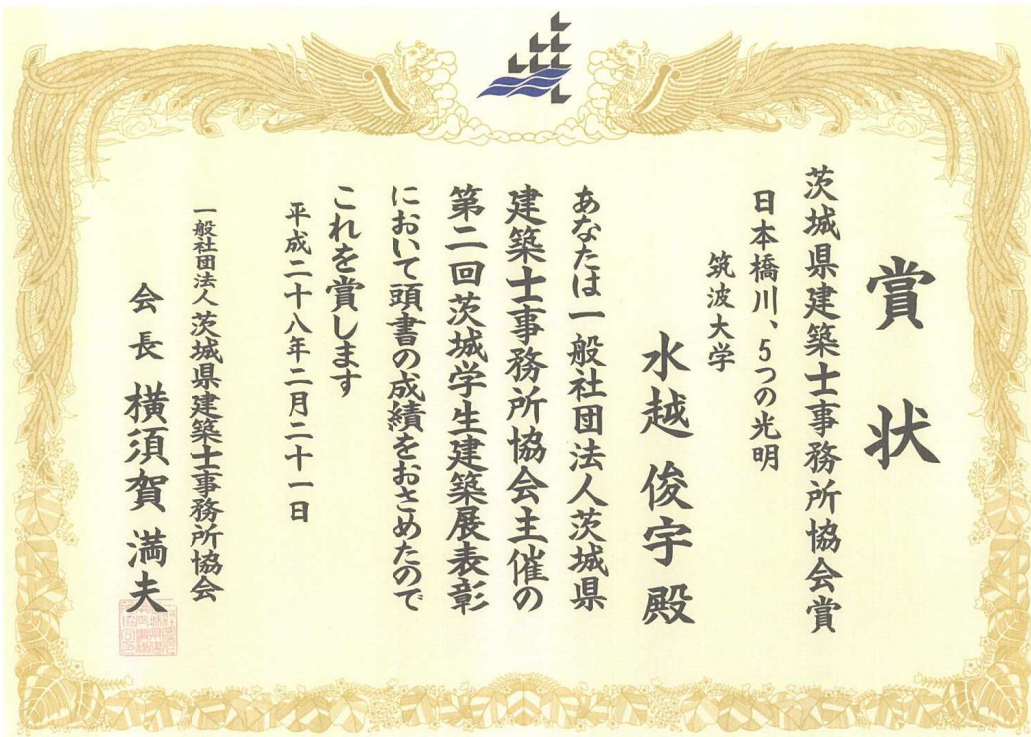 賞状
茨城県建築士事務所協会賞
日本橋川、5つの光明
筑波大学
水越 俊宇 殿
あなたは一般社団法人茨城県
建築士事務所協会主催の
第二回茨城学生建築展表彰
において頭書の成績をおさめたので
これを賞します
平成二十八年二月二十一日
一般社団法人茨城県建築士事務所協会
会長 横須賀 満夫